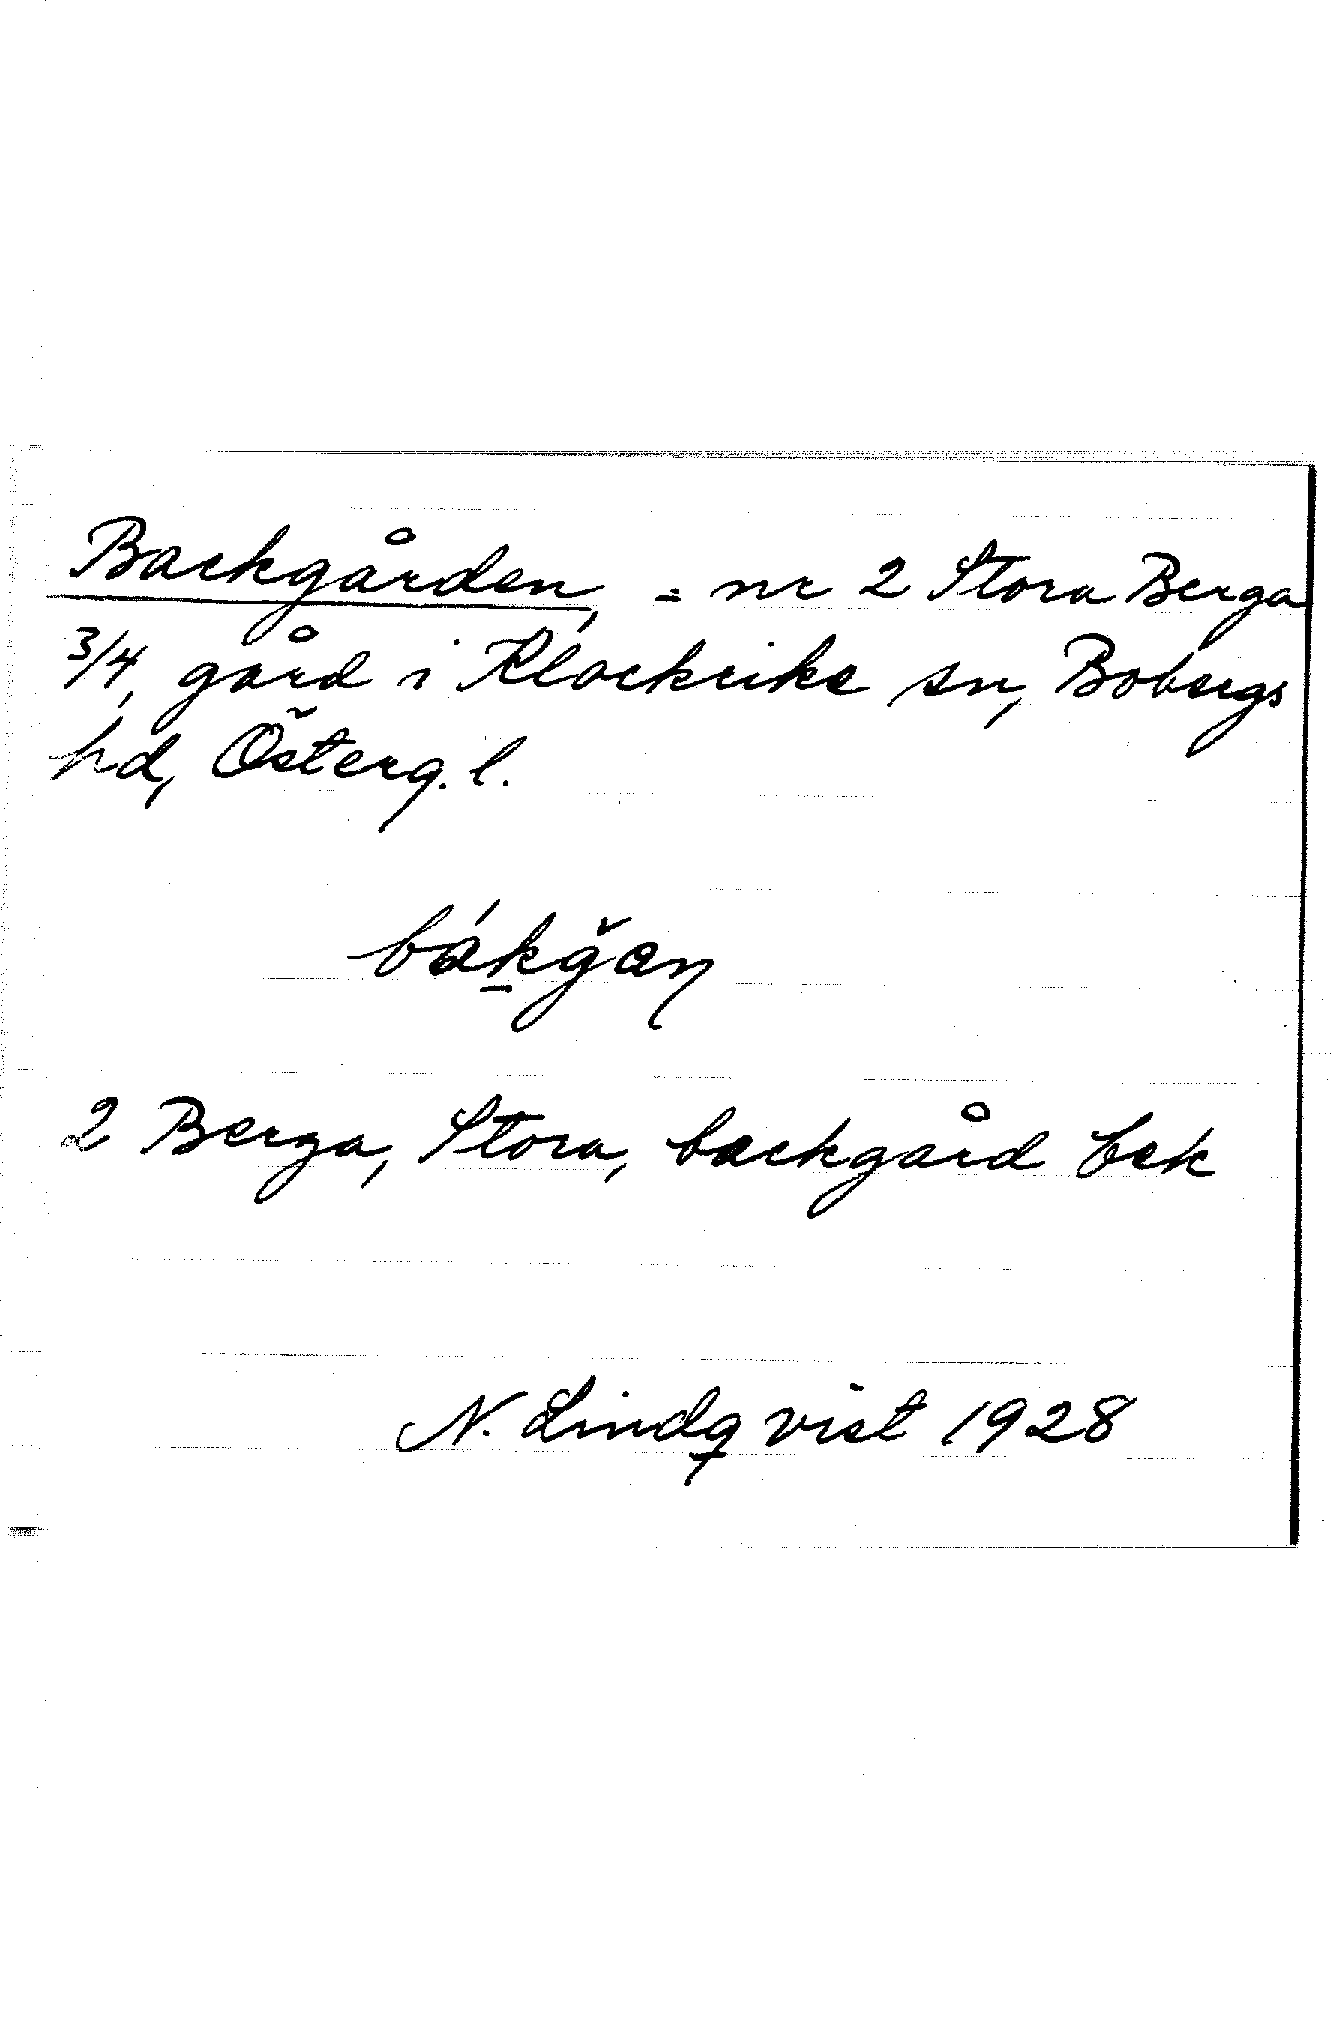 Backgården, = nr 2 Stora Berga
3/4, gård i Klockrike sn, Bobergs
hd, Österg. l.
bákǧan
2 Berga, Stora, backgård bek
N. Lindqvist 1928